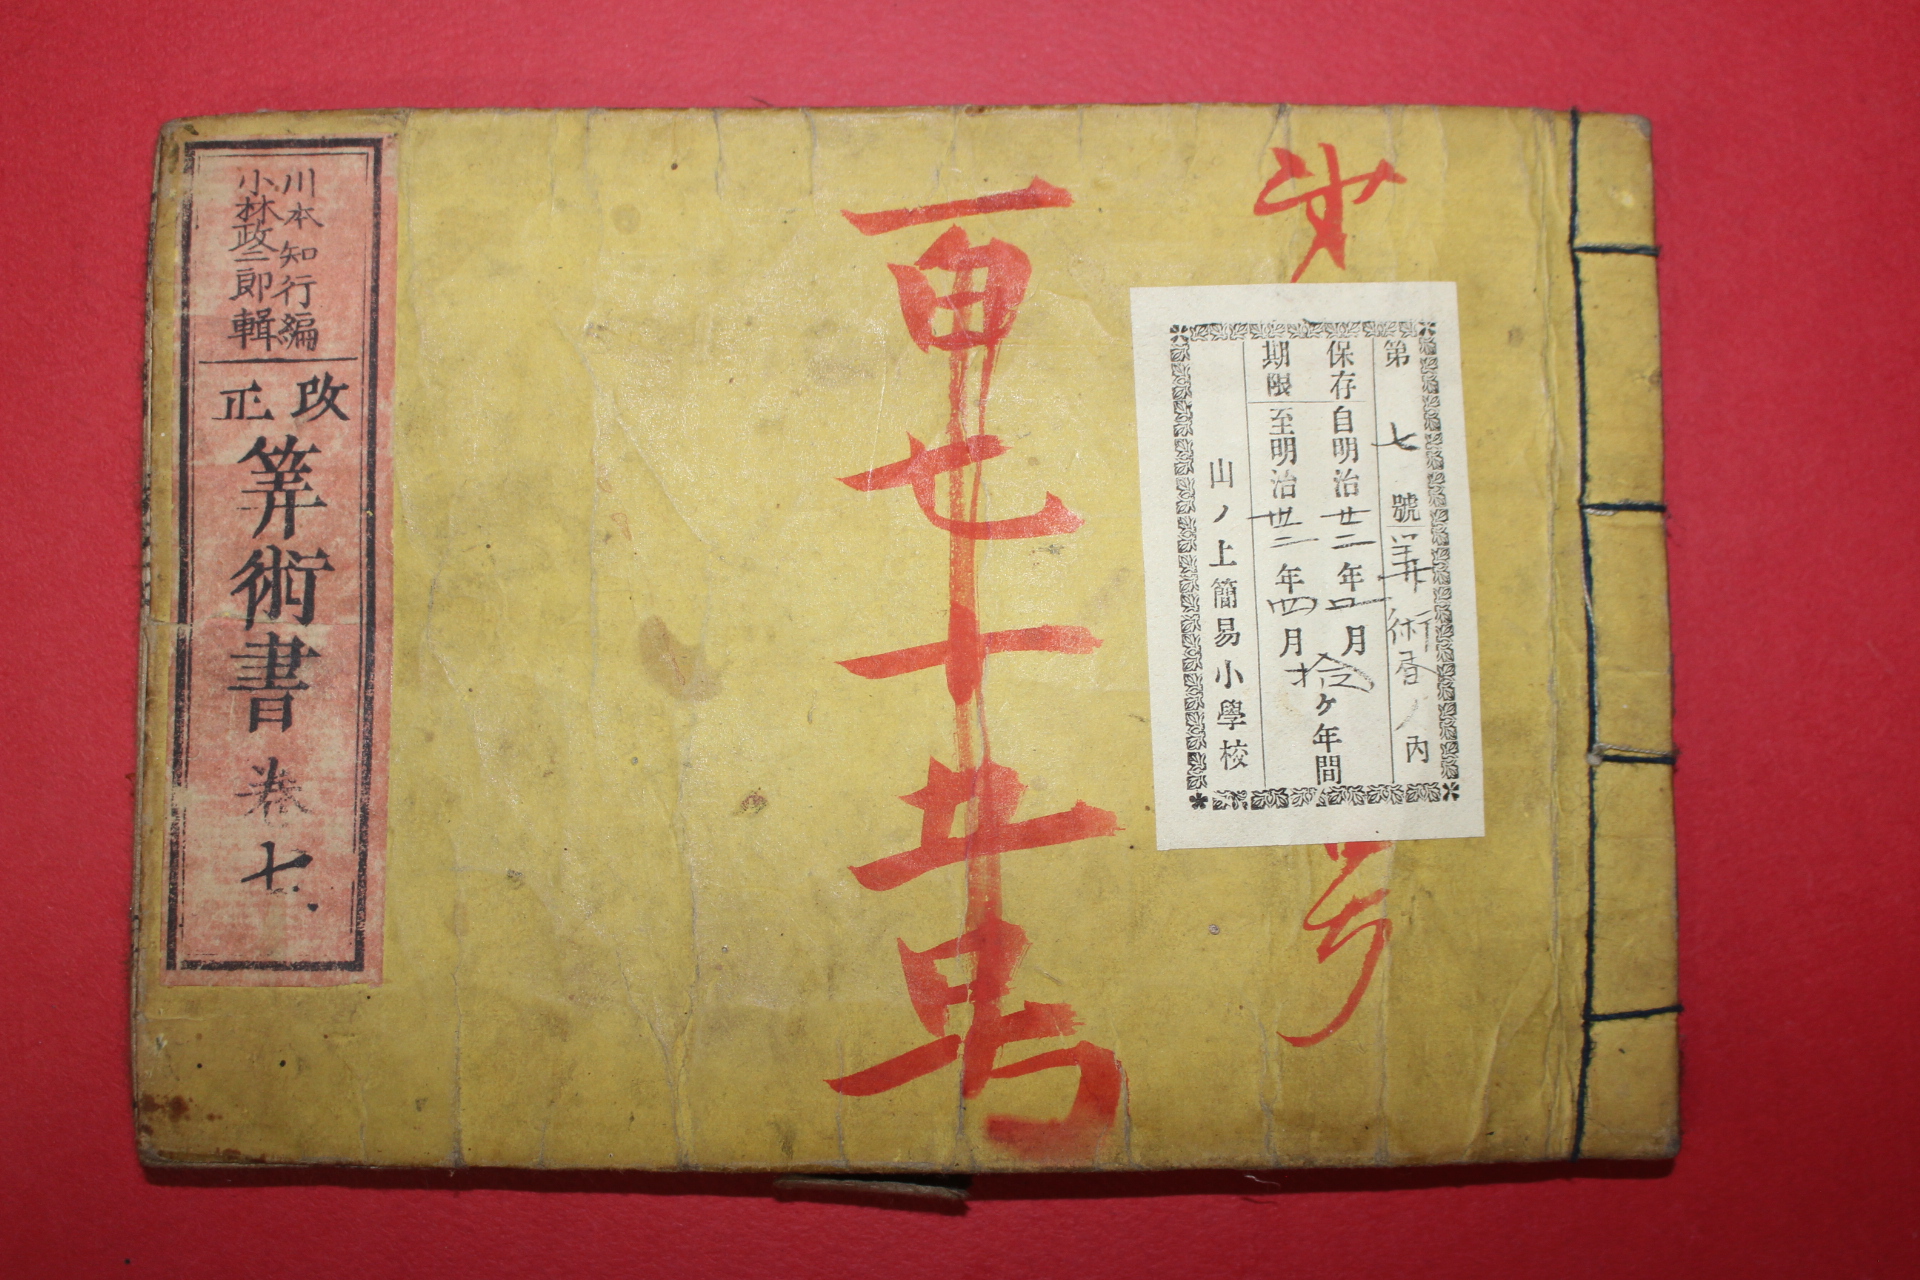 第
号
百七十五号
第七號筭術書ノ内
保存自明治廿二年四月
期限至明治卅二年四月
拾ケ年間
山ノ上簡易小學校
川本知行編
小林政二郎輯
改正
筭術書 卷七